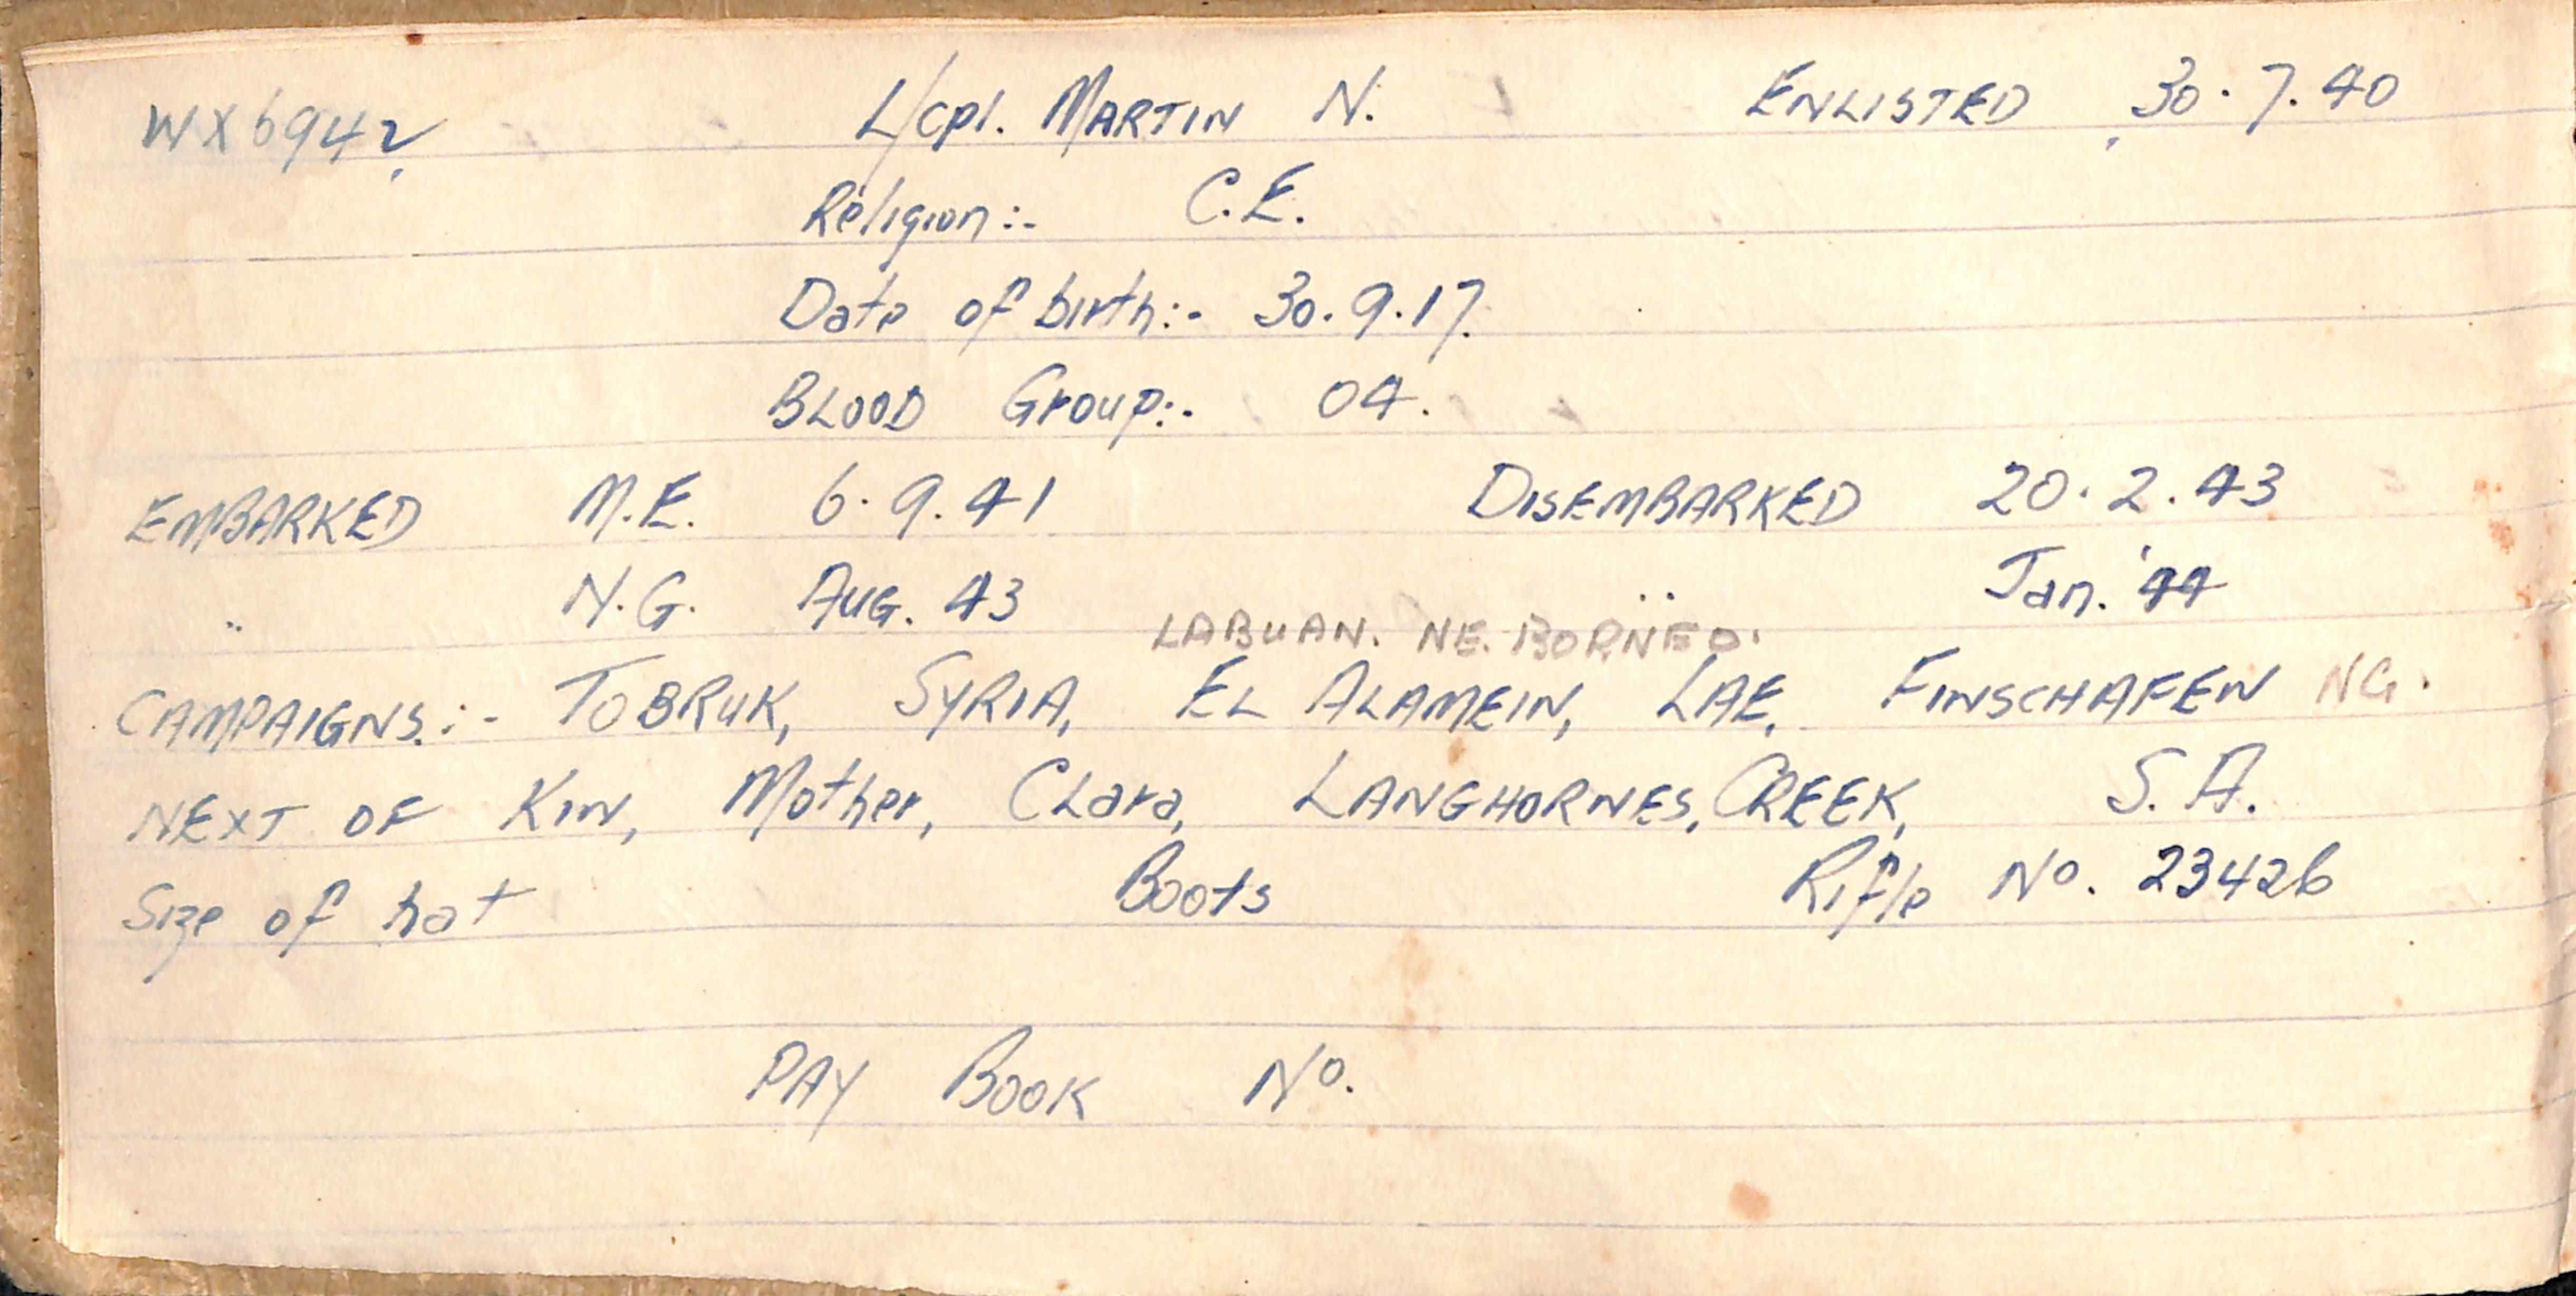 WX6942 L/Cpl. MARTIN N. ENLISTED 30.7.40
Religion:- C.E.
Date of birth:- 30.9.17.
BLOOD Group:- O4.
EMBARKED M.E. 6.9.41 DISEMBARKED 20.2.43
" N.G. AUG. 43 " Jan. '44
LABUAN. NE. BORNEO.
CAMPAIGNS:- TOBRUK, SYRIA, EL ALAMEIN, LAE, FINSCHAFEN NG.
NEXT OF KIN, Mother, CLara, LANGHORNES, CREEK, S.A.
Size of hat Boots Rifle No. 23426
PAY BOOK No.